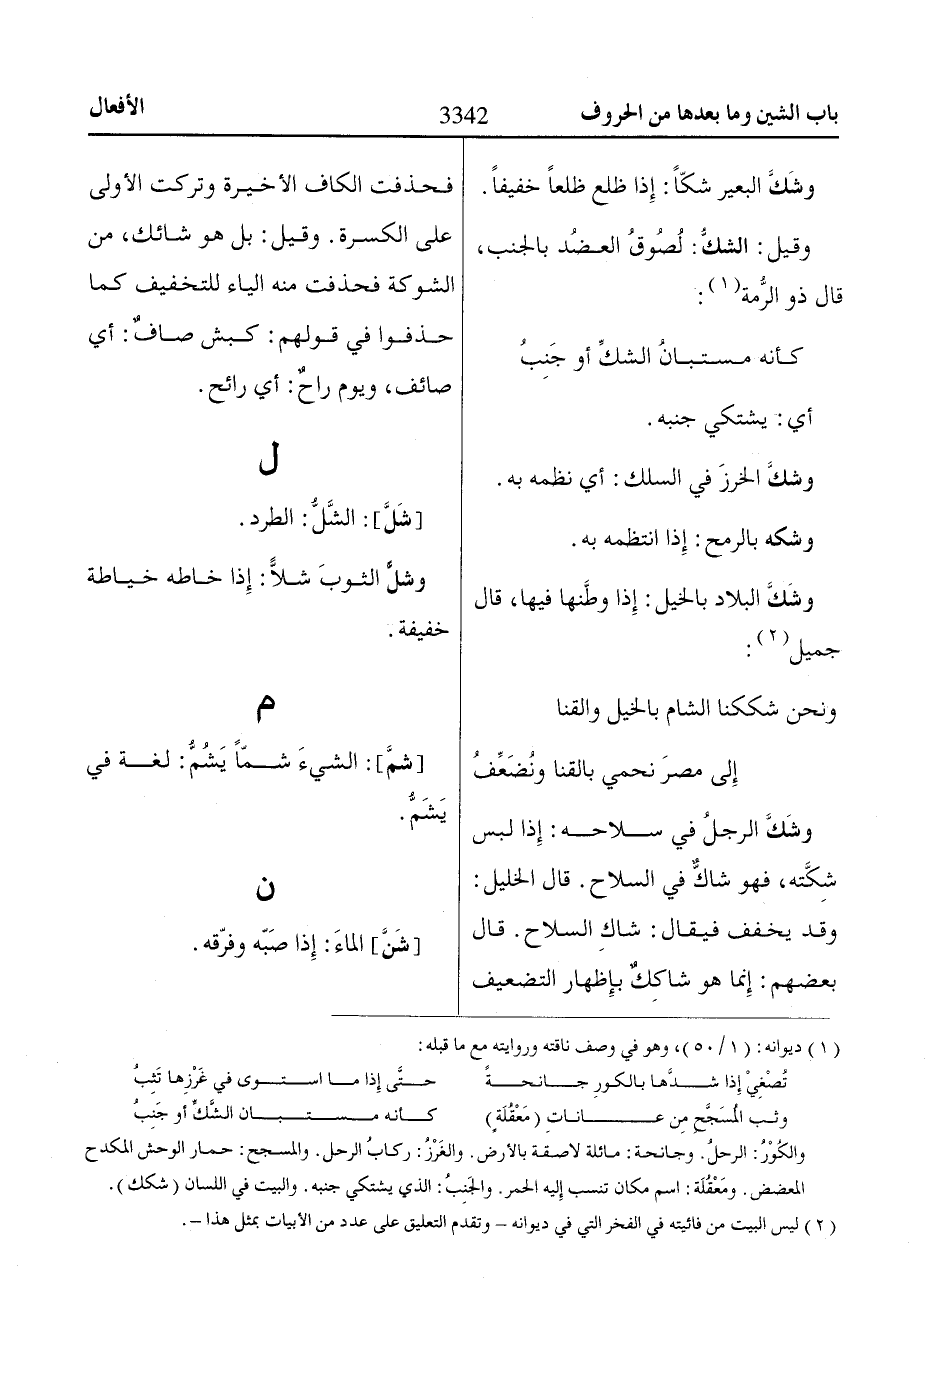 باب الشين وما بعدها من الحروف
3342
الأفعال
وشَكَّ البعير شكّاً: إذا ظلع ظلعاً خفيفاً.
وقيل: الشكُّ: لُصُوقُ العضُد بالجنب،
قال ذو الرُّمة(١):
كأنه مستبانُ الشكِّ أو جَنِبُ
أي: يشتكي جنبه.
وشكَّ الخرزَ في السلك: أي نظمه به.
وشكه بالرمح: إذا انتظمه به.
وشَكَّ البلاد بالخيل: إذا وطَّنها فيها، قال
جميل(٢):
ونحن شككنا الشام بالخيل والقنا
إلى مصرَ نحمي بالقنا ونُضَعِّفُ
وشَكَّ الرجلُ في سلاحه: إذا لبس
شِكَّته، فهو شاكٌّ في السلاح. قال الخليل:
وقد يخفف فيقال: شاكِ السلاح. قال
بعضهم: إنما هو شاكِكٌ بإظهار التضعيف
فحذفت الكاف الأخيرة وتركت الأولى
على الكسرة. وقيل: بل هو شائك، من
الشوكة فحذفت منه الياء للتخفيف كما
حذفوا في قولهم: كبش صافٌ: أي
صائف، ويوم راحٌ: أي رائح.
ل
[شَلَّ]: الشَّلُّ: الطرد.
وشلَّ الثوبَ شلاًّ: إذا خاطه خياطة
خفيفة.
م
[شمَّ]: الشيءَ شمّاً يَشُمُّ: لغة في
يَشَمُّ.
ن
[شَنَّ] الماءَ: إذا صَبّه وفرّقه.
(١) ديوانه: (١/ ٥٠)، وهو في وصف ناقته وروايته مع ما قبله:
تُصْغيْ إذا شدَّها بالكور جانحةً حتَّى إذا ما استوى في غَرْزِها تَثِبُ
وثب المُسَجَّحِ من عانات (مَعْقُلَةٍ) كأنه مستبان الشَّكِّ أو جَنِبُ
والكُوْرُ: الرحلُ. وجانحة: مائلة لاصقة بالأرض. والغَرْزُ: ركابُ الرحل. والمسجح: حمار الوحش المكدح
المعضض. ومَعْقُلَة: اسم مكان تنسب إليه الحمر. والجَنِبُ: الذي يشتكي جنبه. والبيت في اللسان (شكك).
(٢) ليس البيت من فائيته في الفخر التي في ديوانه – وتقدم التعليق على عدد من الأبيات بمثل هذا –.